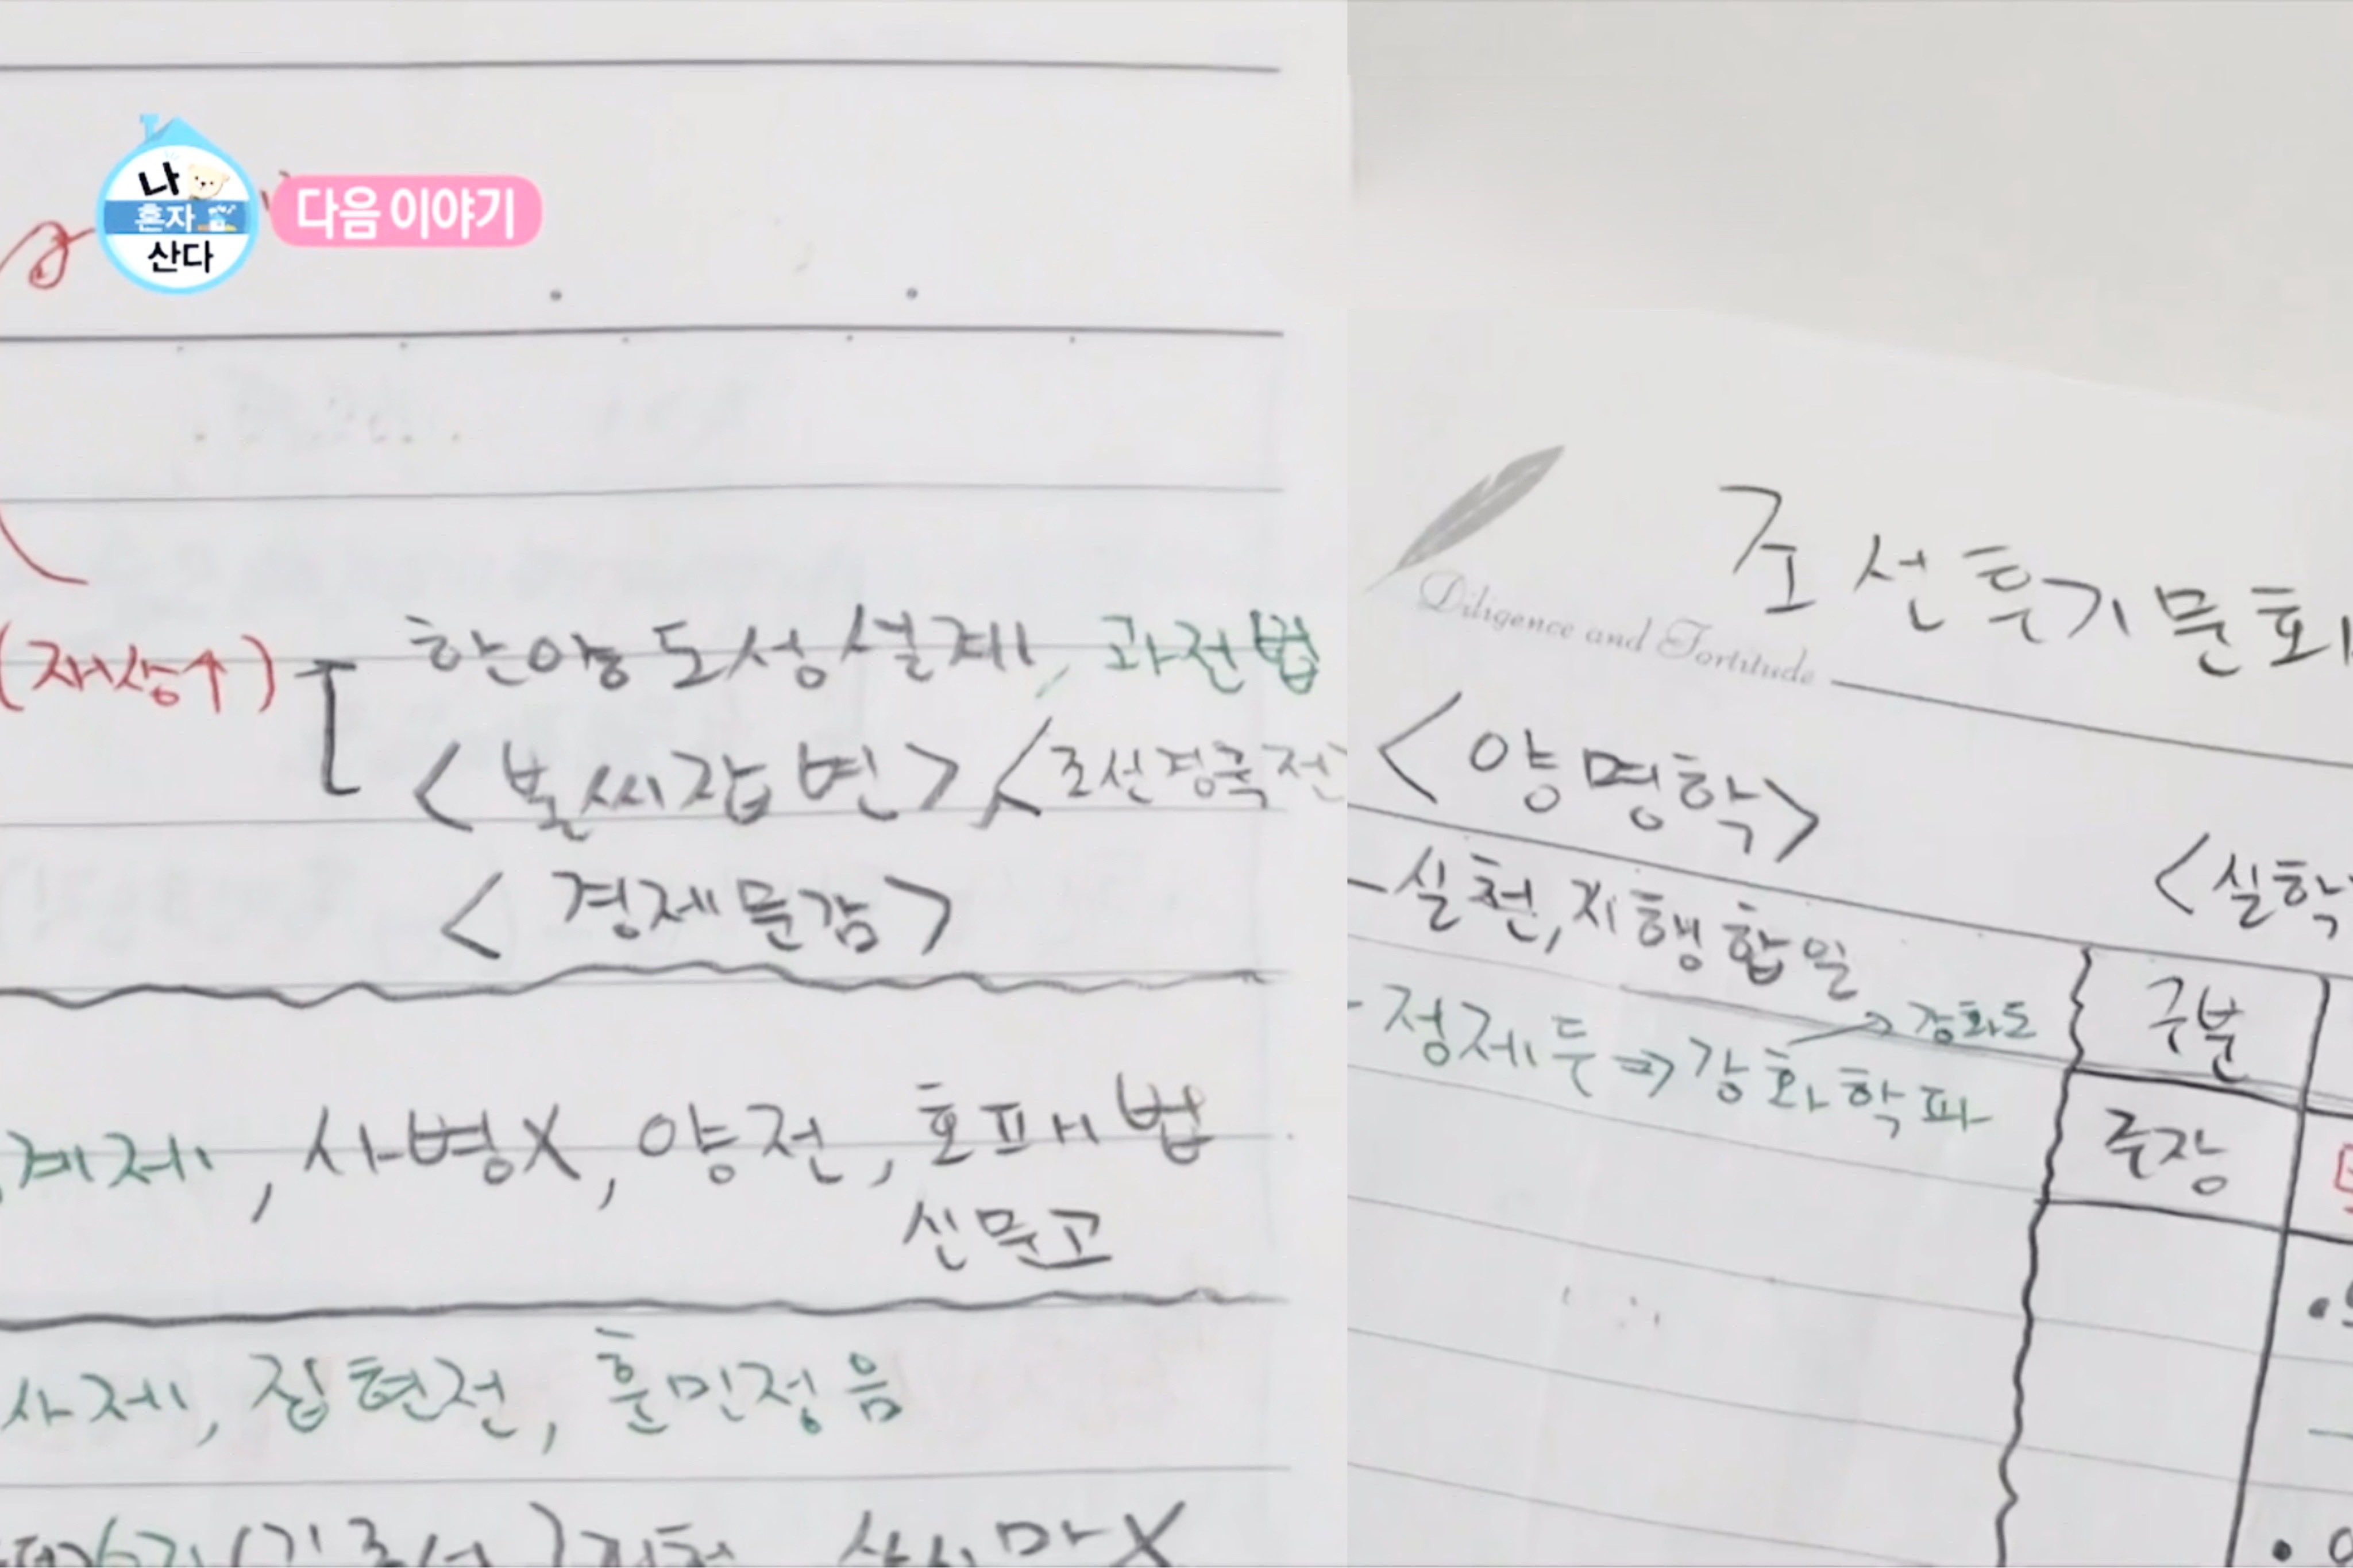 나
혼자
산다
다음 이야기
(재상↑)
한양도성설계, 과전법
<불씨잡변>, <조선경국전
<경제문감>
계제, 사병X, 양전, 호패법
신문고
사제, 집현전, 훈민정음
조선후기문화
Diligence and Fortitude
<양명학>
-실천, 지행합일
-정제두⇒강화학파
→강화도
<실학
구분
주장